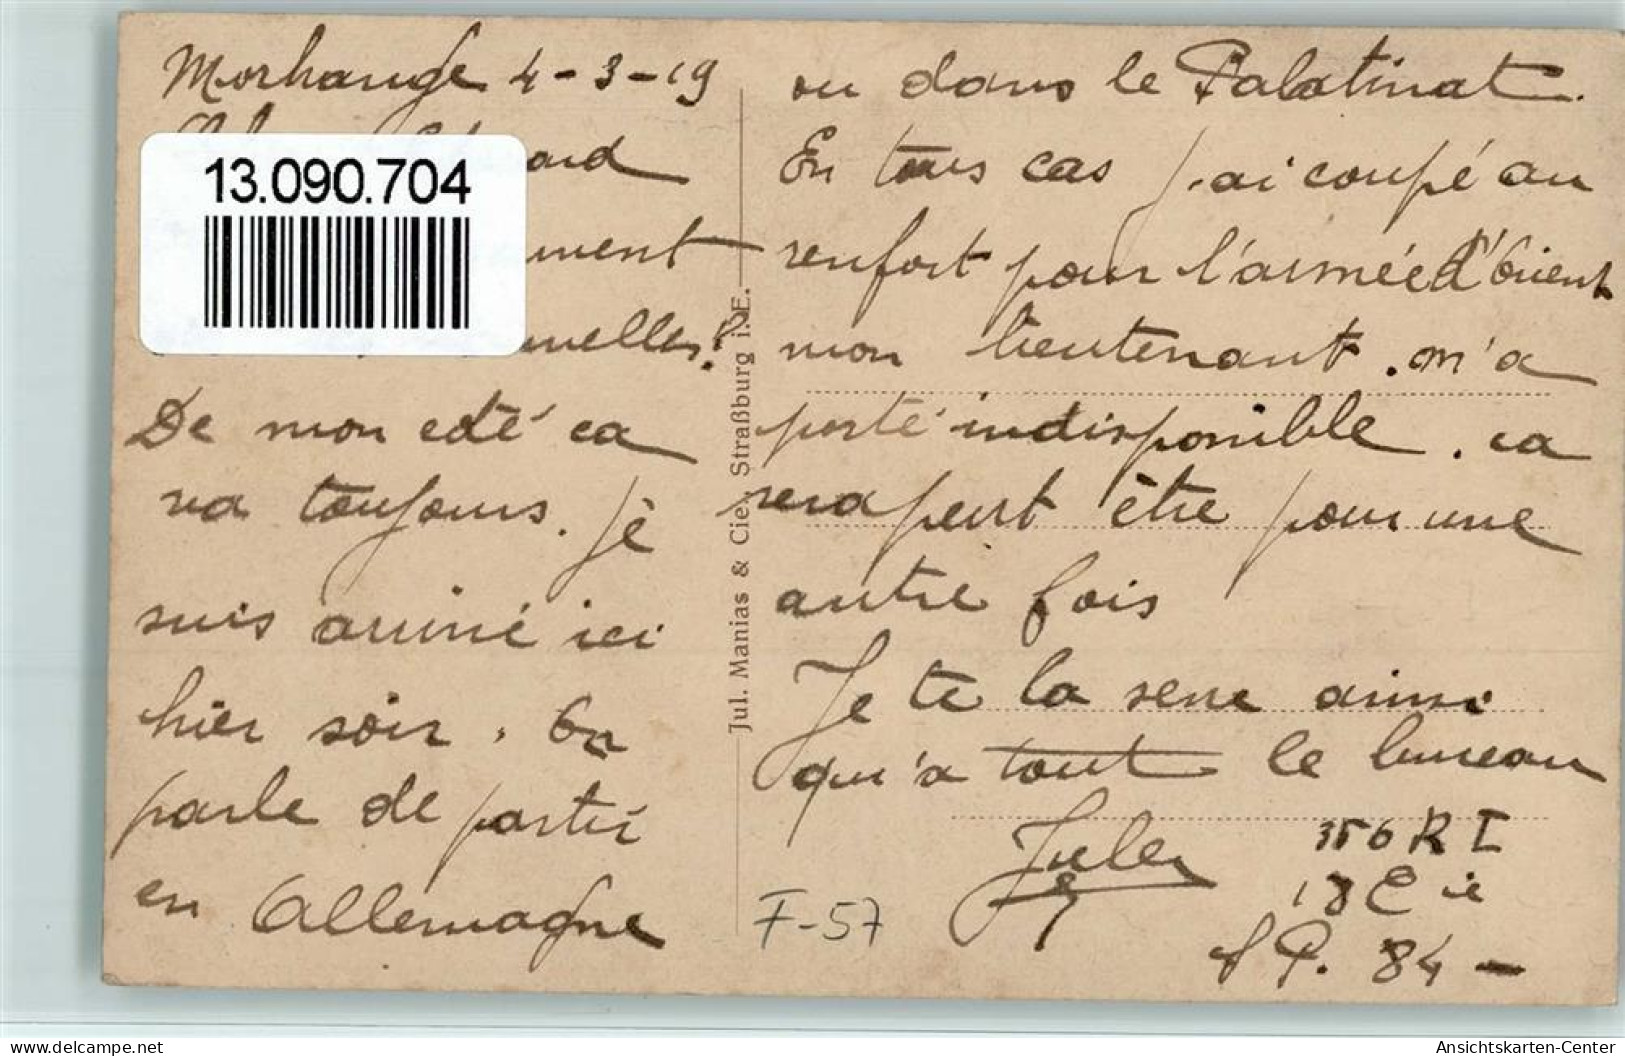 Morhange 4-3-19
ard
ment
nuelles?
De mon coté ca
va toujours. Je
suis arrivé ici
hier soir. On
parle de partir
en Allemagne
ou dans le Palatinat.
En tous cas j'ai coupé au
renfort pour l'armée d'Orient
mon lieutenant m'a
porté indisponible. ca
sera peut être pour une
autre fois
Je te la serre ainsi
qu'a tout le bureau
Jules
356 RI
18 Cie
S P. 84 -
F-57
Jul. Manias & Cie., Straßburg i. E.
13.090.704
www.delcampe.net
Ansichtskarten-Center